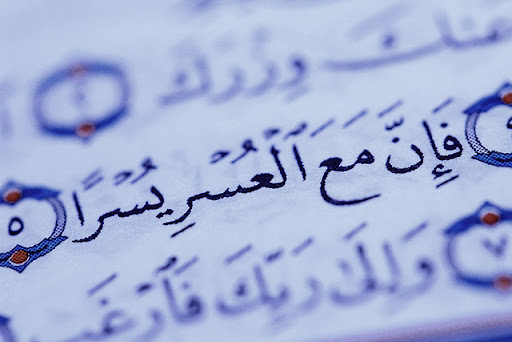 عنك وِزْرَكَ ٢
فَإِنَّ مَعَ ٱلْعُسْرِ يُسْرًا ٥
٧ وَإِلَىٰ رَبِّكَ فَٱرْغَب